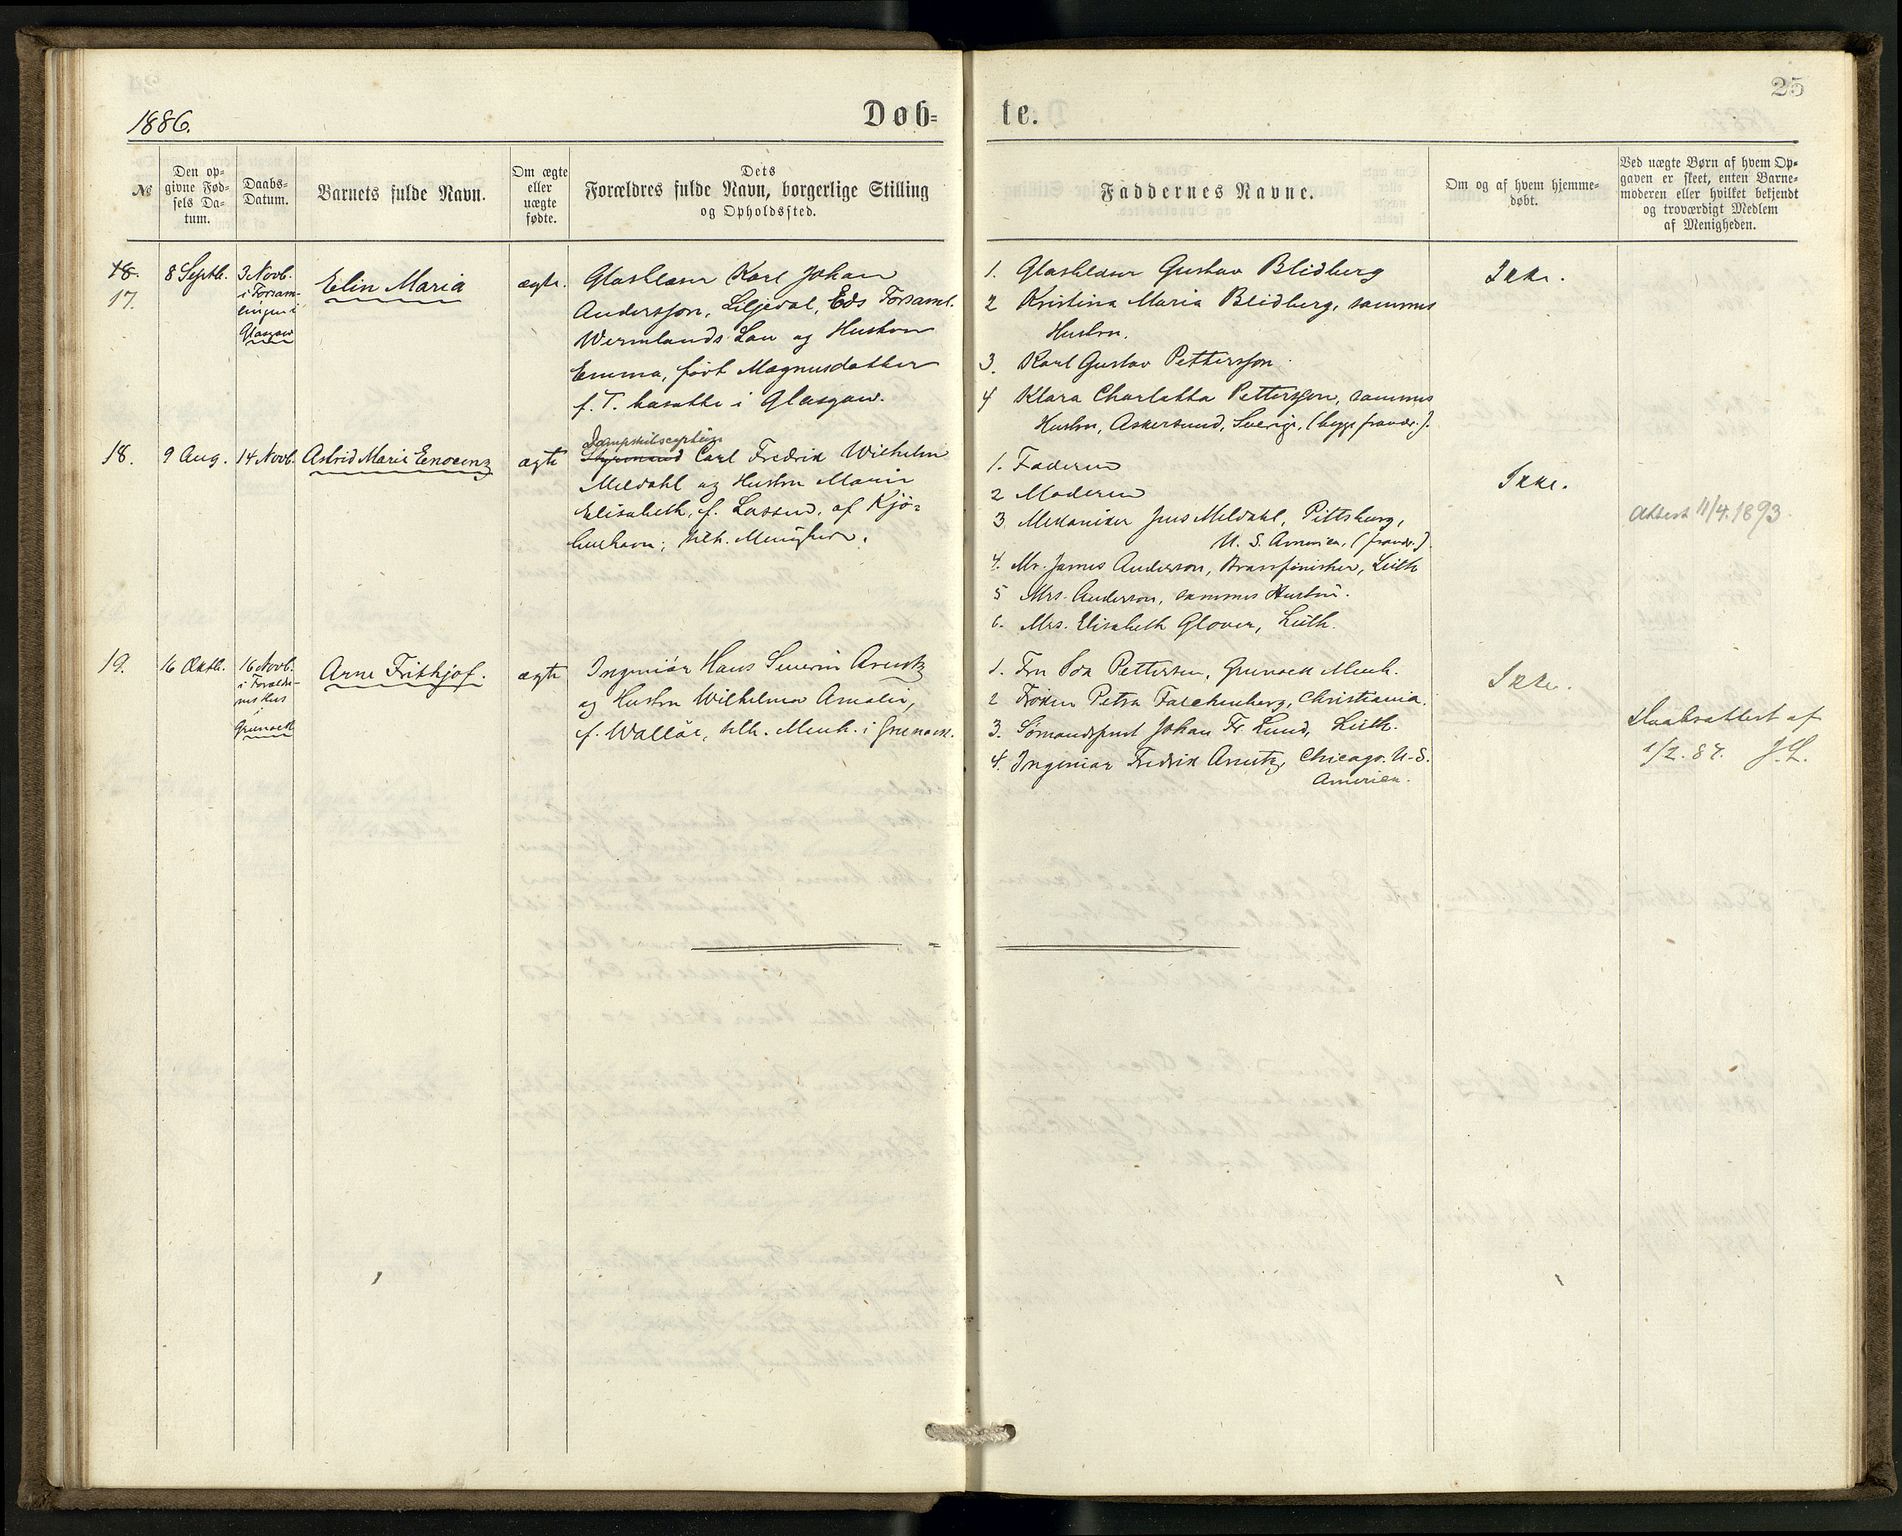 25
1886.
Døb-
te.
No
Den op-
givne Fød-
sels Da-
tum.
Daabs-
Datum.
Barnets fulde Navn.
Om ægte
eller
uægte
fødte.
Dets
Forældres fulde Navn, borgerlige Stilling
og Opholdssted.
Faddernes Navne.
Om og af hvem hjemme-
døbt.
Ved uægte Børn af hvem Op-
gaven er skeet, enten Barne-
moderen eller hvilket bekjendt
og troværdigt Medlem
af Menigheden.
18.
17.
8 Septb.
3 Novb.
i Forsam-
lingen i
Glasgow
Elin Maria
ægte.
Glasblæser Karl Johan
Andersson, Liljedal, Eds Forsaml.
Wermlands Län og Hustru
Emma, født Magnusdatter
f. T. bosatte i Glasgow.
1. Glasblæser Gustav Blidberg
2 Kristina Maria Blidberg, sammes
Hustru.
3. Karl Gustav Pettersson.
4 Klara Charlotta Pettersson, sammes
Hustru, Askersund, Sverige, (begge fravær.).
Ikke.
18.
9 Aug.
14 Novb.
Astrid Marie Enocenz
ægte
Dampskibscaptain
Styrmand Carl Fredrik Wilhelm
Meldahl og Hustru Marie
Elisabeth, f. Lassen, af Kjø-
benhavn; tilh. Menigheden.
1. Faderen
2 Moderen
3 Mekaniker Jens Meldahl, Pittsburg,
U. S. America, (fravær.).
4. Mr. James Anderson, Brassfinisher, Leith
5 Mrs. Anderson, sammes Hustru.
6. Mrs. Elisabeth Glover, Leith.
Ikke.
Attest 11/4. 1893.
19.
16 Oktb.
16 Novb.
i Foræld-
nes Hus
i
Greenock
Arne Frithjof.
ægte
Ingeniør Hans Severin Arentz
og Hustru Wilhelmine Amalie,
f. Walløe, tilh. Menh. i Greenock.
1. Fru Ida Pettersen, Greenock Menh.
2 Frøken Petra Falchenberg, Christiania.
3. Sømandsprest Johan Fr. Lund, Leith.
4. Ingeniør Fredrik Arentz, Chicago. U. S.
America.
Ikke.
Daabsattest af
1/2. 87. J. L.